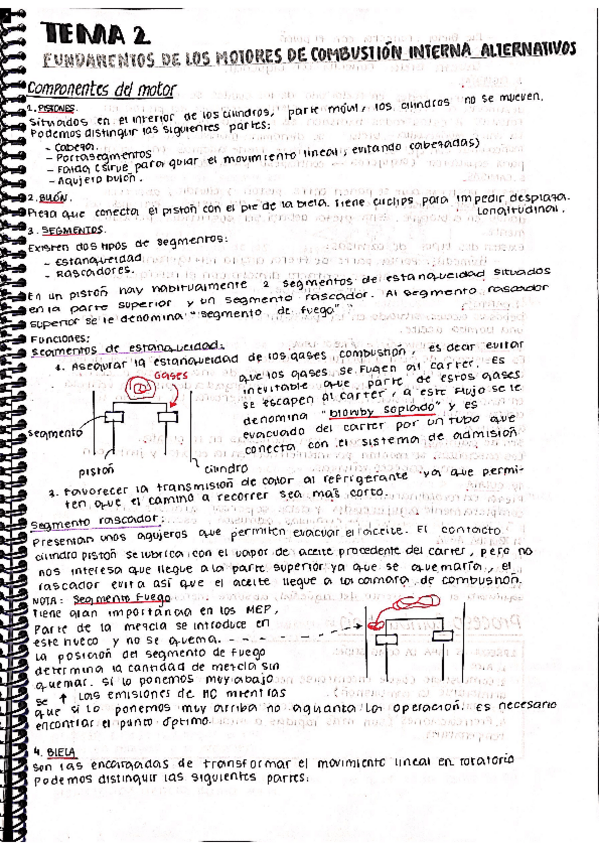 TEMA 2
FUNDAMENTOS DE LOS MOTORES DE COMBUSTIÓN INTERNA ALTERNATIVOS
Componentes del motor
1. PISTONES.
Situados en el interior de los cilindros, parte móvil, los cilindros no se mueven.
Podemos distinguir las siguientes partes:
- Cabeza.
- Portasegmentos
- Falda (sirve para guiar el movimiento lineal, evitando cabezadas)
- Agujero bulón.
2. BULÓN.
Pieza que conecta el pistón con el pie de la biela. Tiene cliclips para impedir desplaza.
Longitudinal.
3. SEGMENTOS.
Existen dos tipos de segmentos:
- Estanqueidad
- Rascadores.
En un pistón hay habitualmente 2 segmentos de estanqueidad situados
en la parte superior y un segmento rascador. Al segmento rascador
superior se le denomina "segmento de fuego".
Funciones:
Segmentos de estanqueidad:
1. Asegurar la estanqueidad de los gases combustión, es decir evitar
que los gases se fugen al carter. Es
inevitable que parte de estos gases
se escapen al carter, a este flujo se le
denomina "blowby soplado" y es
evacuado del carter por un tubo que
conecta con el sistema de admisión
Gases
segmento
pistón
cilindro
2. Favorecer la transmisión de calor al refrigerante ya que permi-
ten que el camino a recorrer sea más corto.
Segmento rascador:
Presentan unos agujeros que permiten evacuar el aceite. El contacto
cilindro pistón se lubrica con el vapor de aceite procedente del carter, pero no
nos interesa que llegue a la parte superior ya que se quemaría, el
rascador evita así que el aceite llegue a la camara de combustión.
NOTA: Segmento Fuego
Tiene gran importancia en los MEP,
Parte de la mezcla se introduce en
este hueco y no se quema.
La posición del segmento de fuego
determina la cantidad de mezcla sin
quemar. Si lo ponemos muy abajo
se ↑ las emisiones de HC mientras
que si lo ponemos muy arriba no aguanta la operación. Es necesario
encontrar el punto óptimo.
4. BIELA
Son las encargadas de transformar el movimiento lineal en rotatorio
Podemos distinguir las siguientes partes: